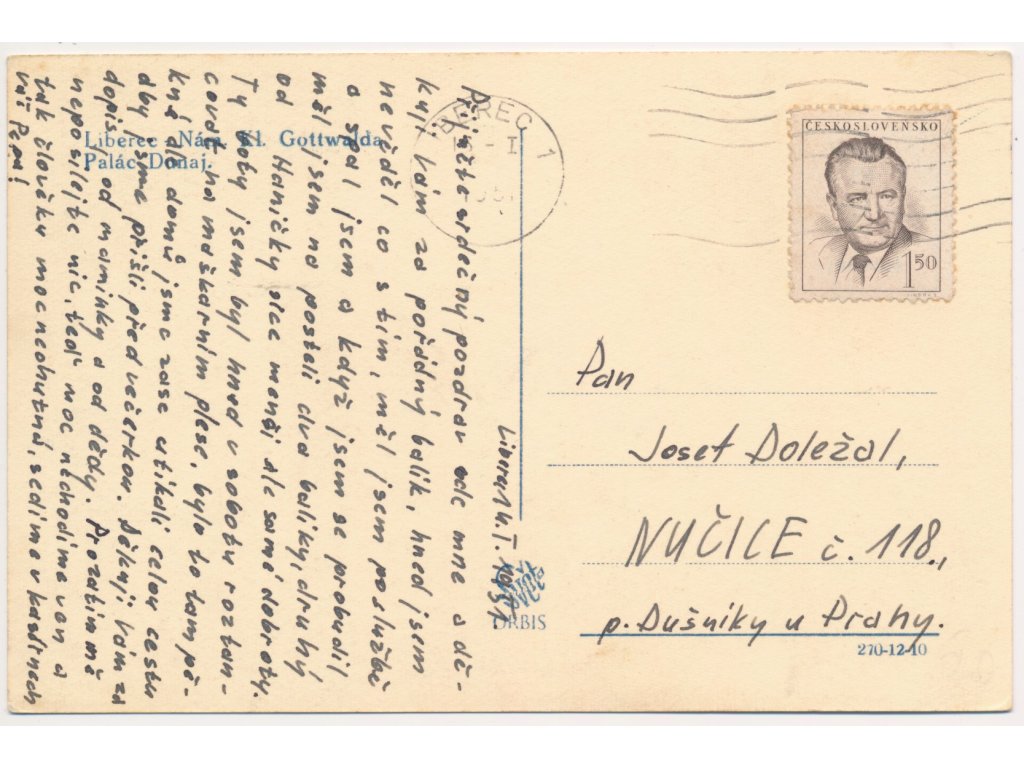 Liberec – Nám. Kl. Gottwalda.
Palác Dunaj.
Liberec 14. I. 1951
Přijměte srdečný pozdrav ode mne a dě-
kuji Vám za pořádný balík, hned jsem
nevěděl co s tím, měl jsem po službě
a spal jsem a když jsem se probudil
měl jsem na posteli dva balíky, druhý
od Haničky sice menší ale samé dobroty.
Ty boty jsem byl hned v sobotu roztan-
covat na maškarním plese, bylo to tam pě-
kné a domů jsme zase utíkali celou cestu
aby jsme přišli před večerkou. Děkuji Vám za
dopis od maminky a od dědy. Prozatím mě
neposílejte nic, teď moc nechodíme ven a
tak člověku moc nechutná, sedíme v kasárnách
váš Pepa!
LIBEREC 1
- I
ČESKOSLOVENSKO
1 50
Pan
Josef Doležal,
NUČICE č. 118.,
p. Dušníky u Prahy.
ORBIS
270-12-10